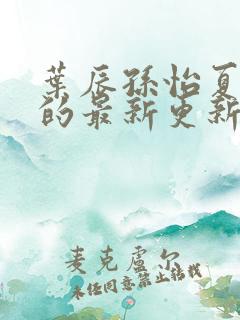 葉辰孫怡夏
的最新更新
麦克盧尔
未经同意禁止转载